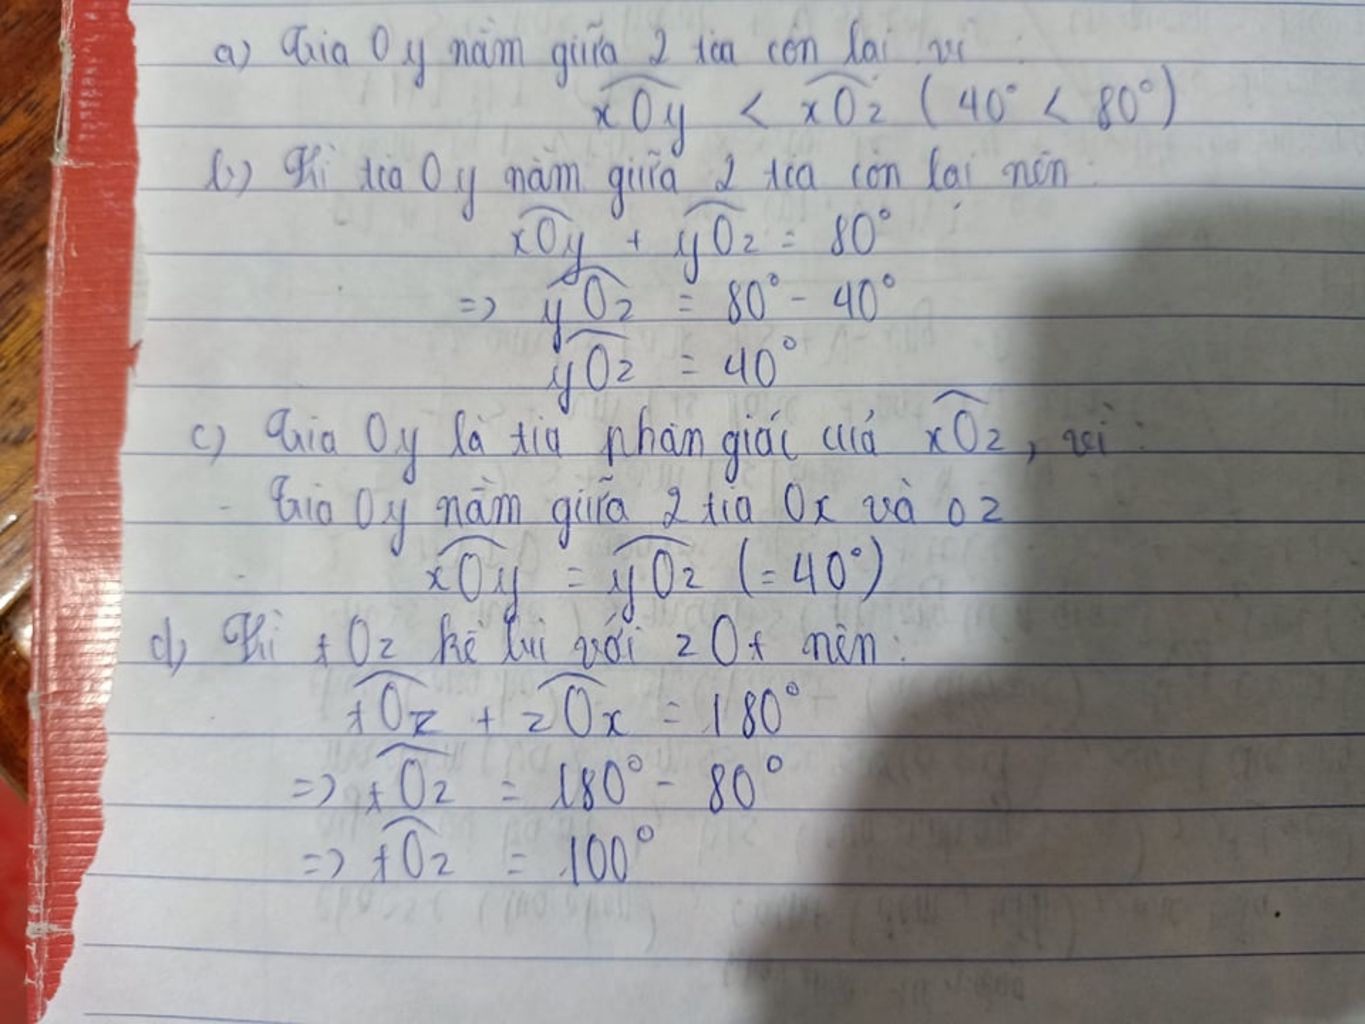 a) Tia Oy nằm giữa 2 tia còn lại vì :
xOy < xOz ( 40° < 80° )
b) Vì tia Oy nằm giữa 2 tia còn lại nên :
xOy + yOz = 80°
=> yOz = 80° - 40°
yOz = 40°
c) Tia Oy là tia phân giác của xOz, vì :
- Tia Oy nằm giữa 2 tia Ox và Oz
- xOy = yOz (= 40°)
d) Vì tOz kề bù với zOt nên :
tOz + zOx = 180°
=> tOz = 180° - 80°
=> tOz = 100°